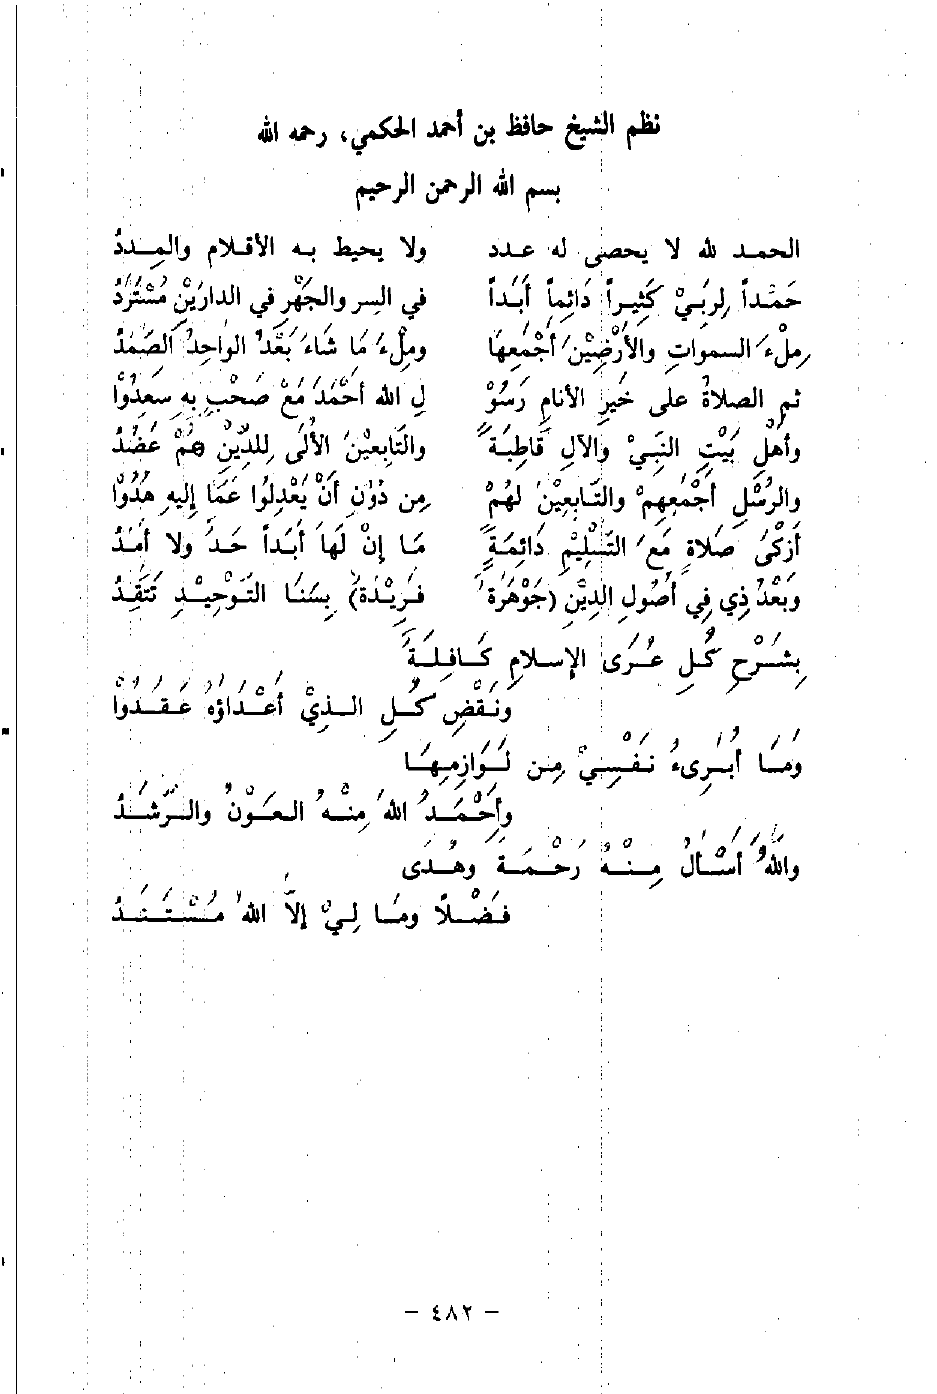 نظم الشيخ حافظ بن أحمد الحكمي، رحمه الله
بسم الله الرحمن الرحيم
الحمد لله لا يحصى له عدد ولا يحيط به الأقلام والمِددُ
حَمْداً لِربيْ كَثِيراً دَائِماً أَبَداً في السِر والجَهْرِ في الدارَيْنِ مُسْتَرَدُ
مِلْءَ السموات والأَرْضِيْنَ أَجْمَعِهَا ومِلْءَ مَا شَاءَ بَعْدُ الواحِدُ الصَمَدُ
ثم الصلاةُ على خَيرِ الأنامِ رَسُوْ لِ الله أحْمَدَ مَعْ صَحْبٍ بِهِ سَعِدُوْا
وأهْلِ بَيْتِ النَبِيْ والآلِ قَاطِبَةً والتَابِعِيْنَ الأُلَى لِلدِّيْنِ هُمْ عَضُدُ
والرُسْلِ أجْمَعِهِمْ والتَابِعِيْنَ لهُمْ مِن دُوْنِ أنْ يَعْدِلُوا عَمَّا إِليهِ هُدُوْا
أَزْكَى صَلاةٍ مَعَ التَسْلِيْمِ دَائِمَةً مَا إِنْ لَهَا أَبَداً حَدٌ ولا أَمَدُ
وَبَعْدُ ذِي فِي أُصُولِ الدِيْنِ (جَوْهَرَةٌ فَرِيْدَةٌ) بِسَنَا التَوْحِيْدِ تَتَقِدُ
بِشَرْحِ كُلِ عُرَى الإِسلامِ كَافِلَةً
ونَقْضِ كُلِ الذِيْ أَعْدَاؤُهُ عَقَدُوْا
وَمَا أُبَرِىءُ نَفْسِيْ مِن لَوَازِمِهَا
وأَحْمَدُ اللهَ مِنْهُ العَوْنُ والرَّشَدُ
واللهَ أَسْأَلُ مِنْهُ رَحْمَةً وهُدَى
فَضْلًا ومَا لِيْ إِلاَّ اللهُ مُسْتَنَدُ
– ٤٨٢ –